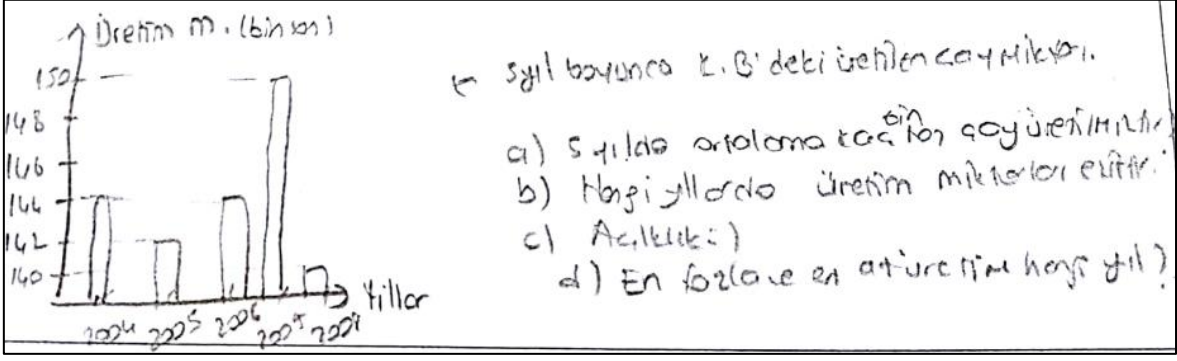 Üretim m. (bin ton)
150
148
146
144
142
140
2004 2005 2006 2007
Yıllar
5 yıl boyunca K.B'deki üretilen çay miktarı.
a) 5 yılda ortalama kaç bin ton çay üretilmiştir
b) Hangi yıllarda üretim miktarları eşittir.
c) Açıklık:)
d) En fazla ve en az üretim hangi yıl?